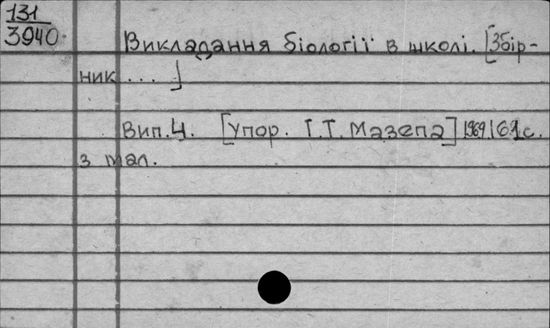 131
3940.
Викладання біології в школі. [Збір-
ник ... ]
Вип. 4. [Упор. Г.Т. Мазепа] 1969 61 с.
з мал.